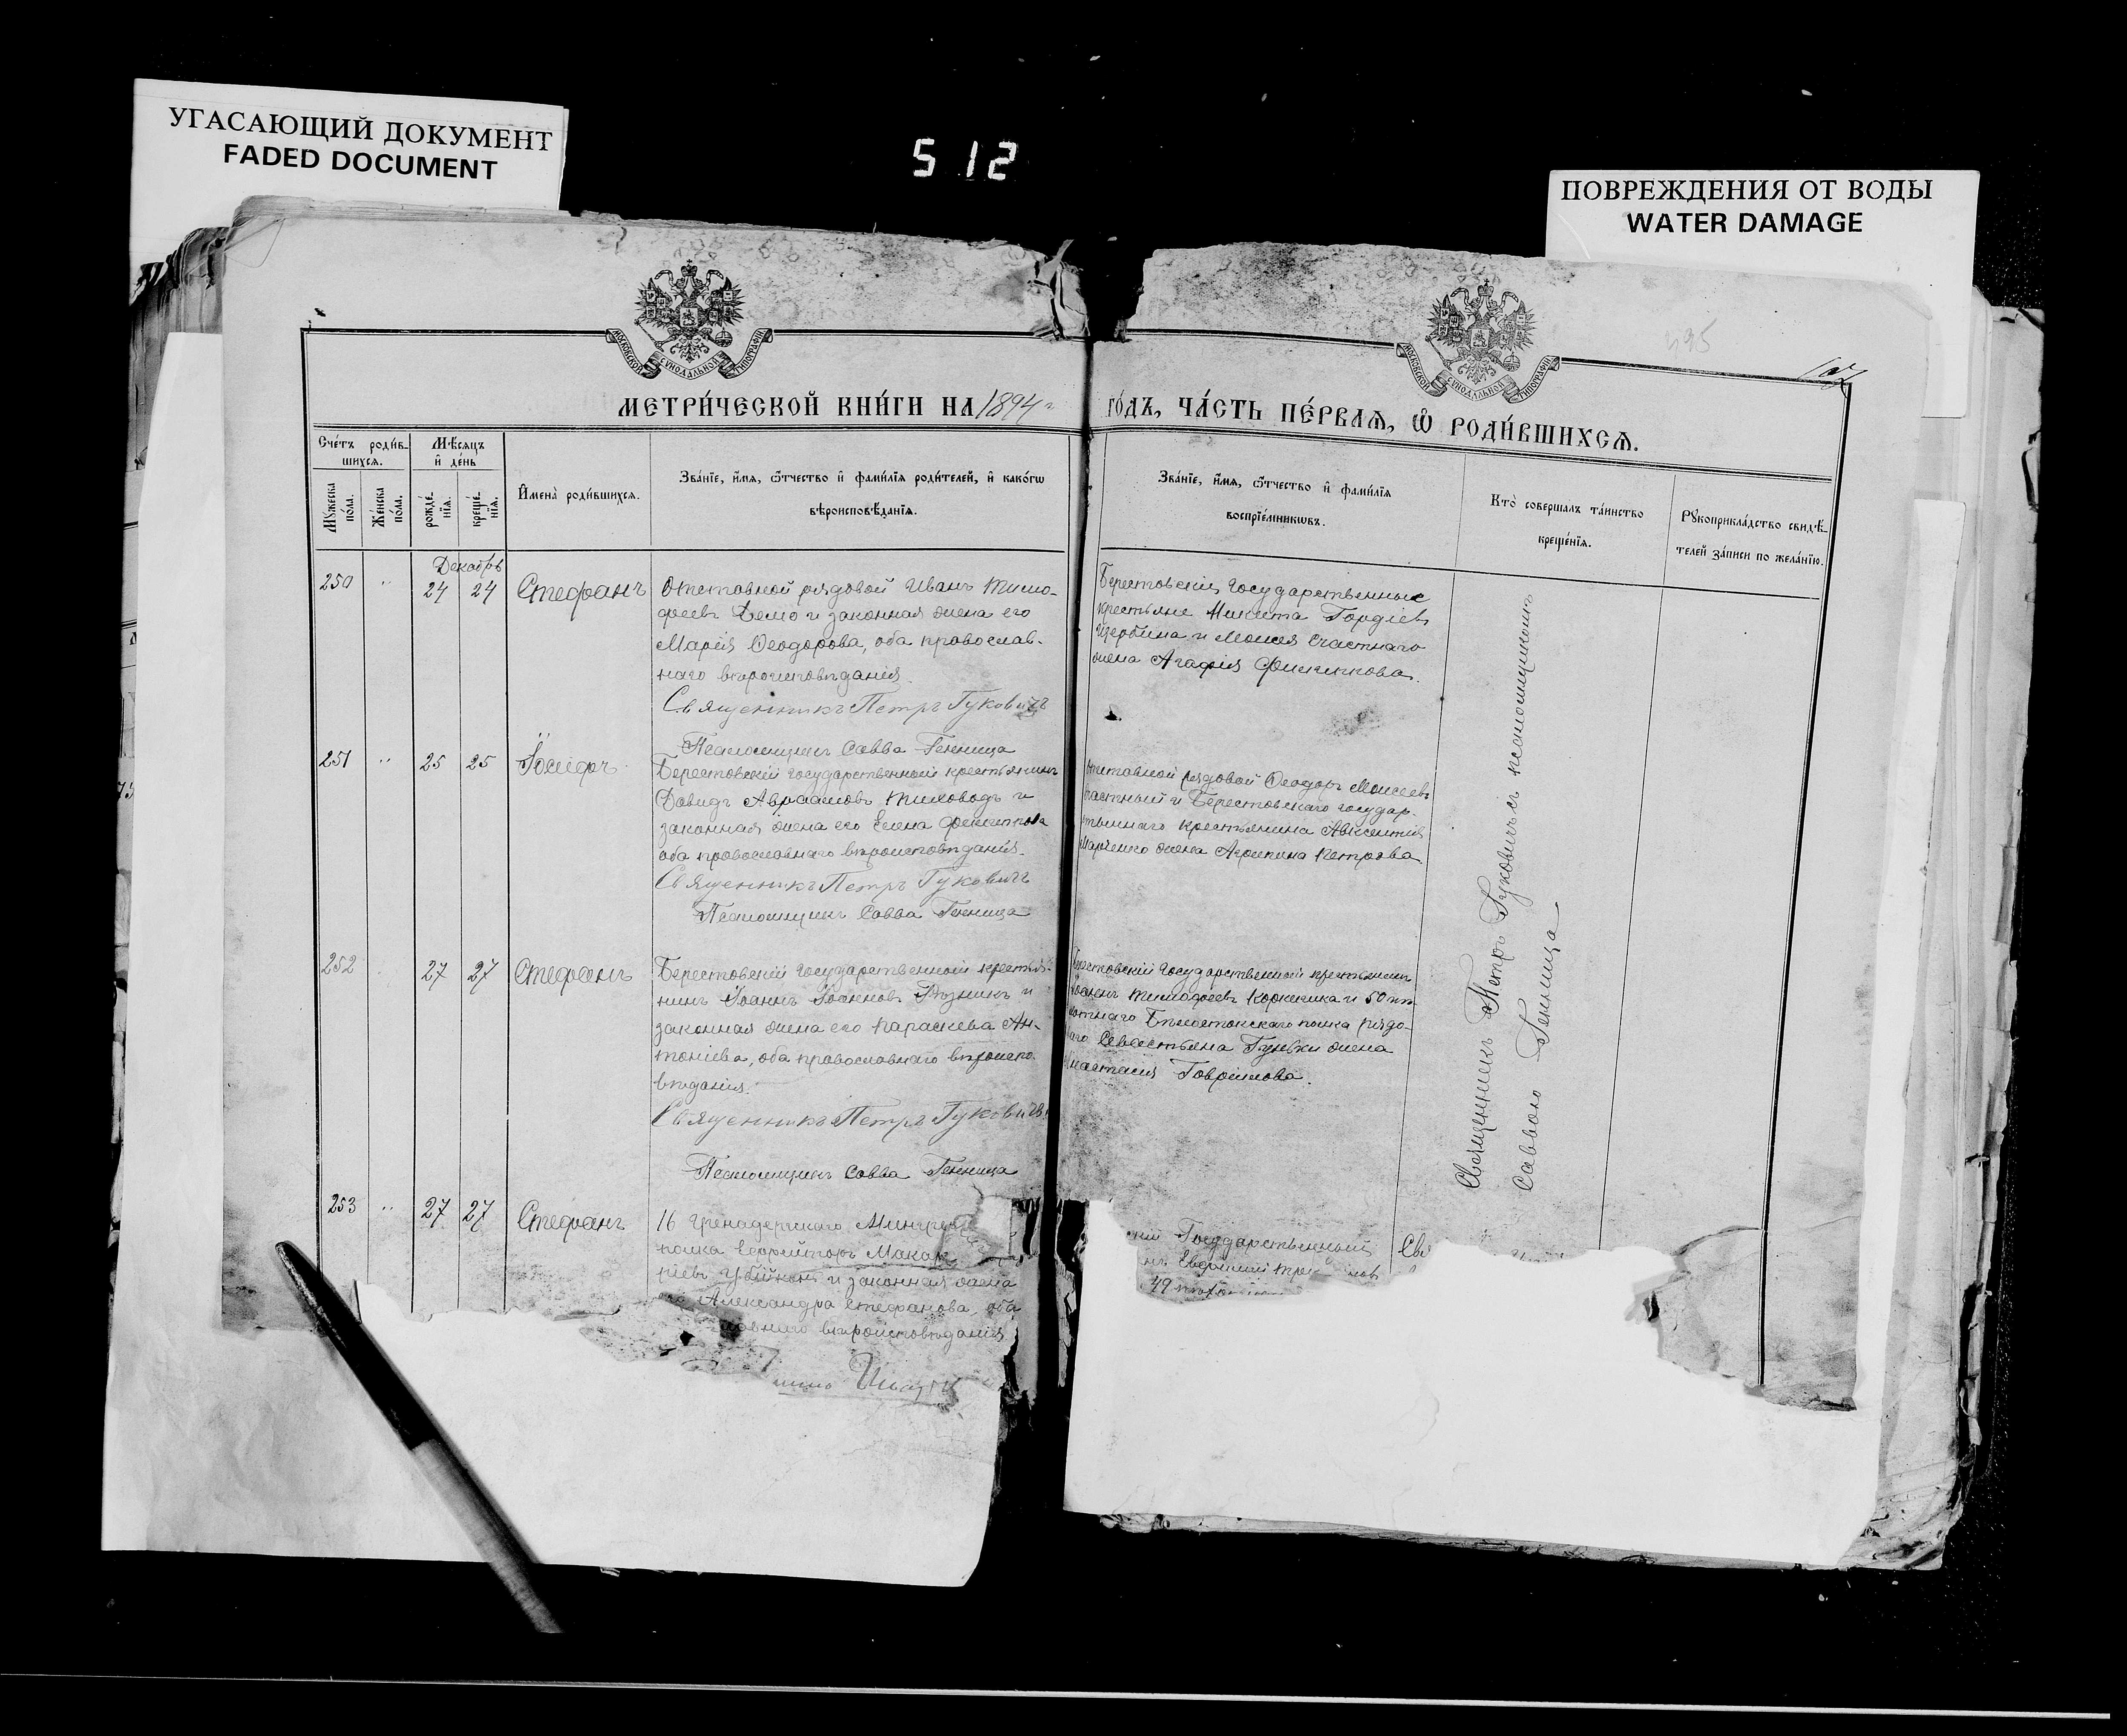 УГАСАЮЩИЙ ДОКУМЕНТ
FADED DOCUMENT
512
ПОВРЕЖДЕНИЯ ОТ ВОДЫ
WATER DAMAGE
МОСКОВСКОЙ СУНОДАЛЬНОЙ ТИПОГРАФІИ
МОСКОВСКОЙ СУНОДАЛЬНОЙ ТИПОГРАФІИ
МЕТРИ́ЧЕСКОЙ КНИ́ГИ НА 1894 г
ГО́ДЪ, ЧА́СТЬ ПЕ́РВАѦ, Ѽ РОДИ́ВШИХСѦ.
Сче́тъ роди́в-
шихся.
Мѣ́сяцъ
и҆ де́нь
Мꙋ́жеска по́ла.
Же́нска по́ла.
рожде́-
нїѧ.
креще́-
нїѧ.
И҆мена̀ роди́вшихсѧ.
Зва́нїе, и҆́мѧ, ѻ҆́тчество и҆ фами́лїѧ роди́телей, и҆ како́гѡ
вѣроисповѣ́данїѧ.
Зва́нїе, и҆́мѧ, ѻ҆́тчество и҆ фами́лїѧ
воспрїе́мникѡвъ.
Кто̀ соверша́лъ та́инство
креще́нїѧ.
Рꙋкоприкла́дство свидѣ́-
телей за́писи по жела́нїю.
Декабрь
250 " 24 24 Стефанъ
Отставной рядовой Иванъ Тимо-
феевъ и законная жена его
Марія Ѳеодорова, оба православ-
наго вѣроисповѣданія.
Священникъ Петръ Гуковичъ
Псаломщикъ Савва Геница
Берестовскіе Государственные
крестьяне Никита Гордіевъ
Щербина и Моисея Счастнаго
жена Агафія
251 " 25 25 Іосифъ
Берестовскій государственный крестьянинъ
Давидъ Авраамовъ Тиховодъ и
законная жена его Елена
оба православнаго вѣроисповѣданія.
Священникъ Петръ Гуковичъ
Псаломщикъ Савва Геница
отставной рядовой Ѳеодоръ Моисеевъ
частный и Берестовскаго государ-
ственнаго крестьянина Авксентія
Марченко жена Агрипина Петрова
252 27 27 Стефанъ
Берестовскій Государственный крестья-
нинъ Іоаннъ Іоанновъ Рѣзникъ и
законная жена его Параскева Ан-
тоніева, оба православнаго вѣроиспо-
вѣданія.
Священникъ Петръ Гуковичъ
Псаломщикъ Савва Геница
рестовскій Государственный крестьянинъ
Тимофеевъ и 50 пѣ-
хотнаго Бѣлостокскаго полка рядо-
ваго Севастьяна жена
настасія Гаврилова.
Священникъ Петръ Гуковичъ съ псаломщикомъ
Саввою Геница
253 " 27 27 Стефанъ
16 Гренадерскаго
полка Ефрейторъ Макар
и законная жена
Александра Стефанова, оба
вѣроисповѣданія
скій Государственный
Евфимій
49
Свя